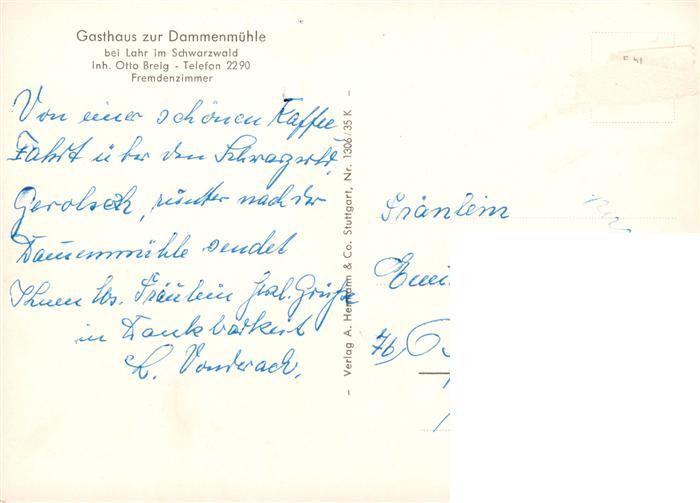 Gasthaus zur Dammenmühle
bei Lahr im Schwarzwald
Inh. Otto Breig - Telefon 2290
Fremdenzimmer
Von einer schönen Kaffee
Fahrt über den Schwarzwald,
Geroldseck, runter nach der
Dammenmühle sendet
Ihnen lbs. Fräulein herzl. Grüße
in Dankbarkeit
L. Vonderach.
– Verlag A. Hermann & Co. Stuttgart, Nr. 1306/35 K –
Fräulein
76